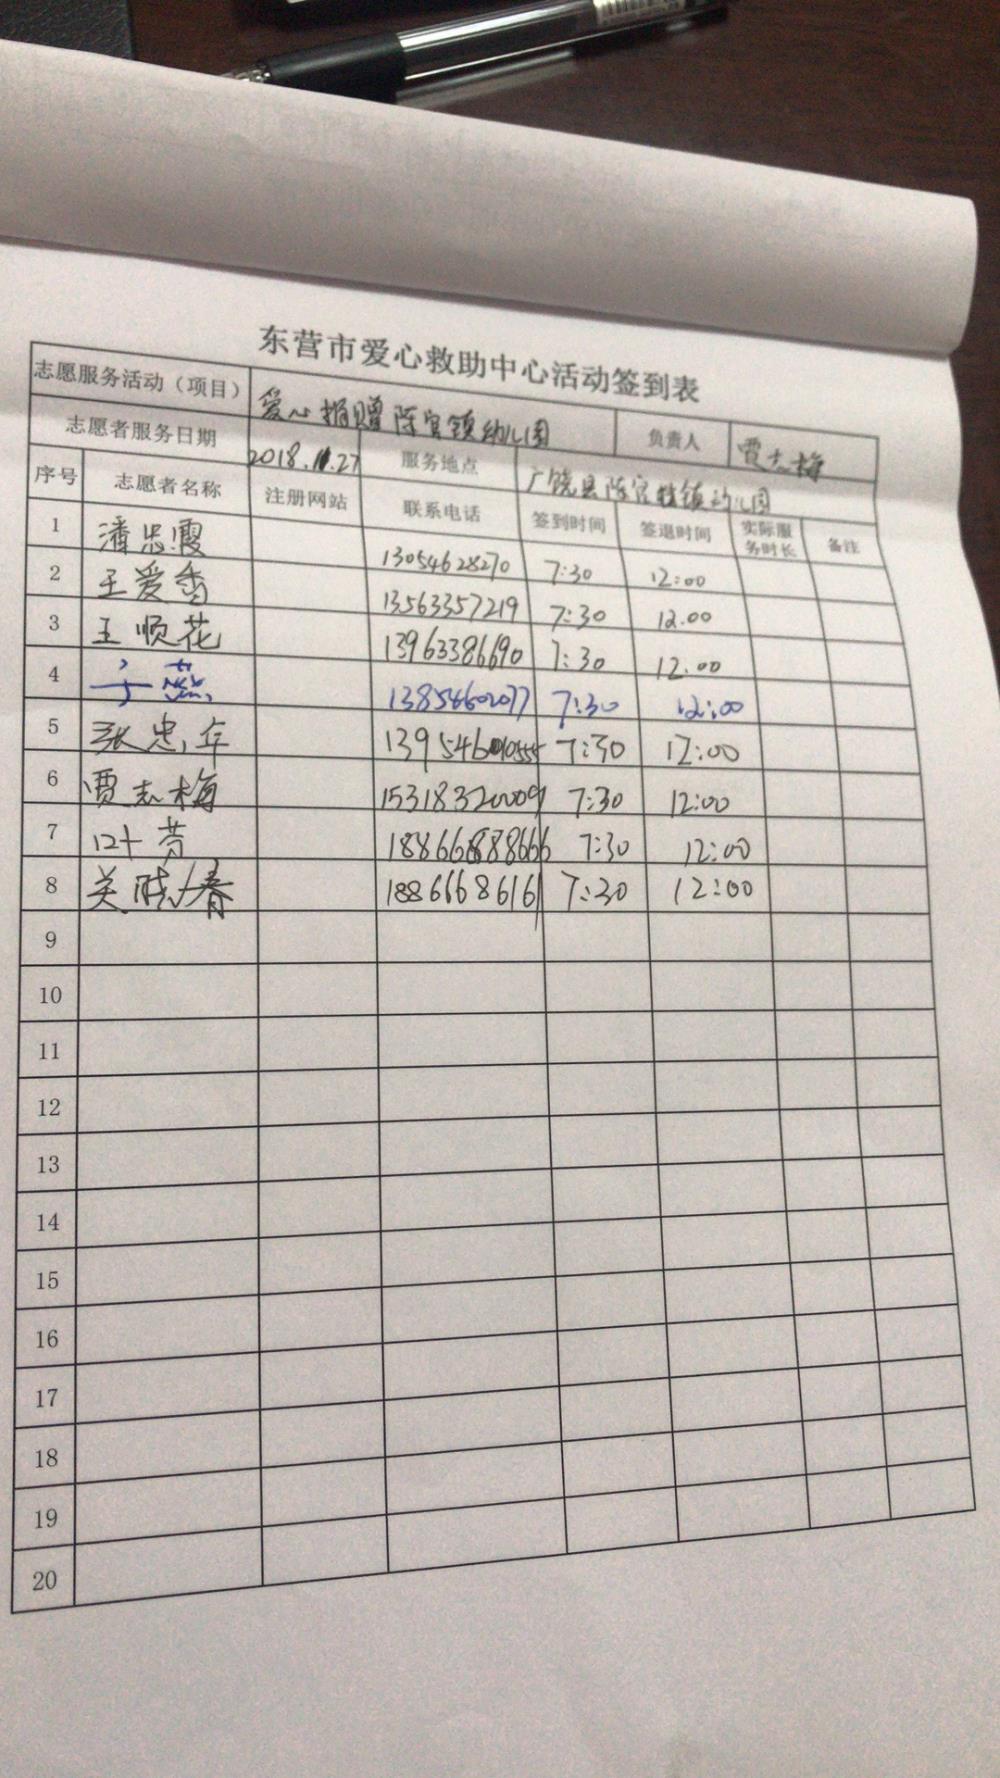 东营市爱心救助中心活动签到表
志愿服务活动（项目） 爱心捐赠陈官镇幼儿园 负责人 贾志梅
志愿者服务日期 2018.11.27 服务地点 广饶县陈官镇幼儿园
序号 志愿者名称 注册网站 联系电话 签到时间 签退时间 实际服务时长 备注
1 潘忠霞 13054628270 7:30 12:00
2 王爱香 13563357219 7:30 12.00
3 王顺花 13963386690 7:30 12.00
4 13854602077 7:30 12:00
5 张忠年 7:30 12:00
6 贾志梅 15318320009 7:30 12:00
7 叶芳 7:30 12:00
8 关晓春 18866686161 7:30 12:00
9
10
11
12
13
14
15
16
17
18
19
20